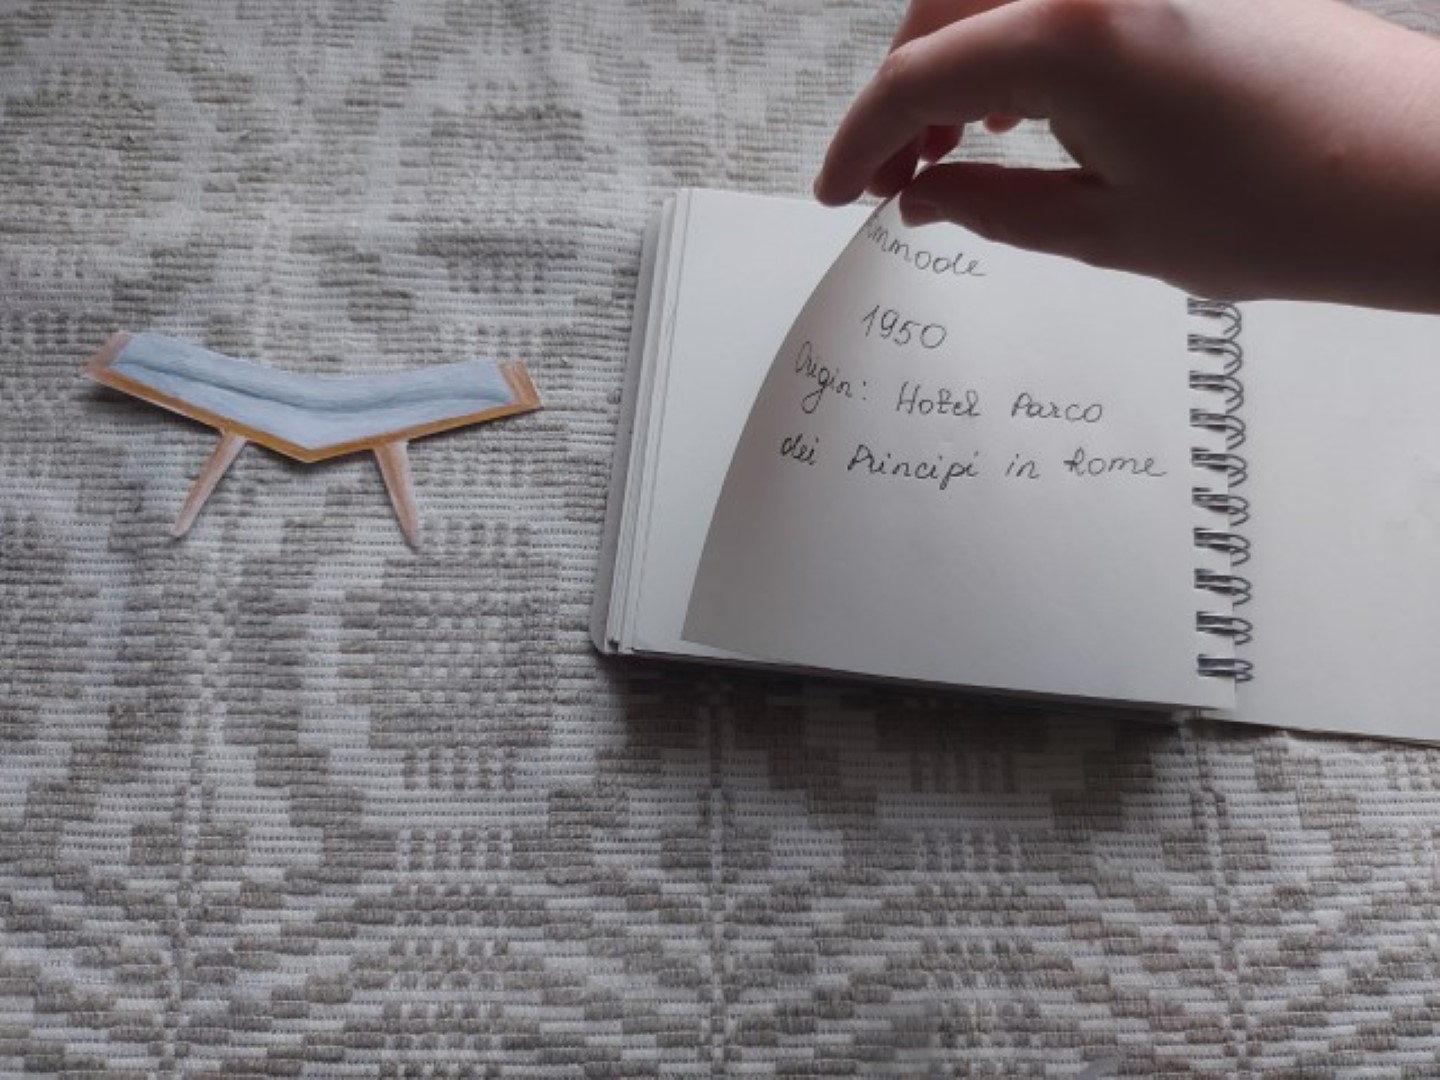 ommode
1950
Origin: Hotel Parco
dei Principi in Rome